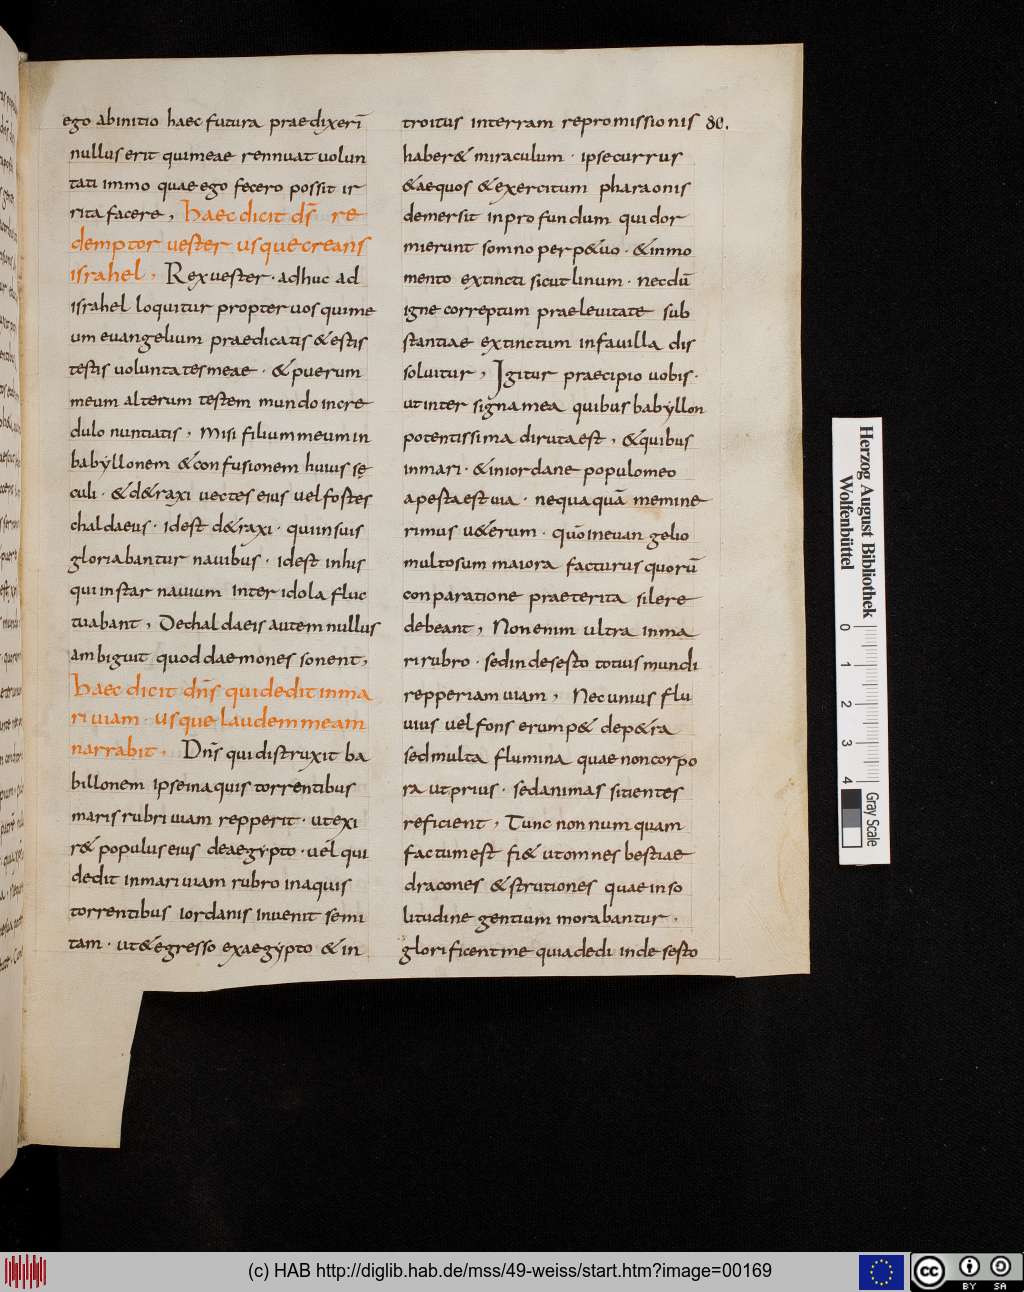 ego abinitio haec futura praedixerī
nullus erit quimeae rennuat uolun
tati immo quae ego fecero possit ir
rita facere, haec dicit dn̄s re
demptor uester usque creans
israhel, Rex uester · adhuc ad
israhel loquitur propter uos quime
um euangelium praedicatis & estis
testis uoluntates meae · & puerum
meum alterum testem mundo incre
dulo nuntiatis, misi filium meum in
babyllonem & confusionem huius sę
culi · & d&raxi uectes eius uel fostes
chaldaeus · idest d&raxi · qui in suis
gloriabantur nauibus · idest inhis
qui instar nauium inter idola fluc
tuabant, De chaldaeis autem nullus
ambiguit quod daemones sonent,
haec dicit dn̄s qui dedit in ma
ri uiam · usque laudem meam
narrabit, Dn̄s qui distruxit ba
billonem ipse in aquis torrentibus
maris rubri uiam repperit · ut exi
r& populus eius de aegypto · uel qui
dedit in mari uiam rubro in aquis
torrentibus iordanis inuenit semi
tam · ut & egresso ex aegypto & in
troitus in terram repromissionis
haber& miraculum · ipse currus
& aequos & exercitum pharaonis
demersit in profundum qui dor
mierunt somno perp&uo · & in mo
mento extincti sicut linum · nec dū
igne correptum prae leuitate sub
stantiae extinctum in fauilla dis
soluitur, Igitur praecipio uobis ·
ut inter signa mea quibus babyllon
potentissima diruta est, & quibus
in mari · & in iordane populo meo
apesta est uia · nequaquā memine
rimus u&erum · quō in euangelio
multo sum maiora facturus quorū
conparatione praeterita silere
debeant, Non enim ultra in ma
ri rubro · sed in deserto totius mundi
repperiam uiam, Nec unius flu
uius uel fons erump& de p&ra
sed multa flumina quae non corpo
ra ut prius · sed animas sitientes
reficient, Tunc non num quam
factum est fi& ut omnes bestiae
dracones & strutiones quae in so
litudine gentium morabantur,
glorificent me quia dedi in deserto
Herzog August Bibliothek
Wolfenbüttel
0 1 2 3 4
Gray Scale
(c) HAB http://diglib.hab.de/mss/49-weiss/start.htm?image=00169
cc BY SA